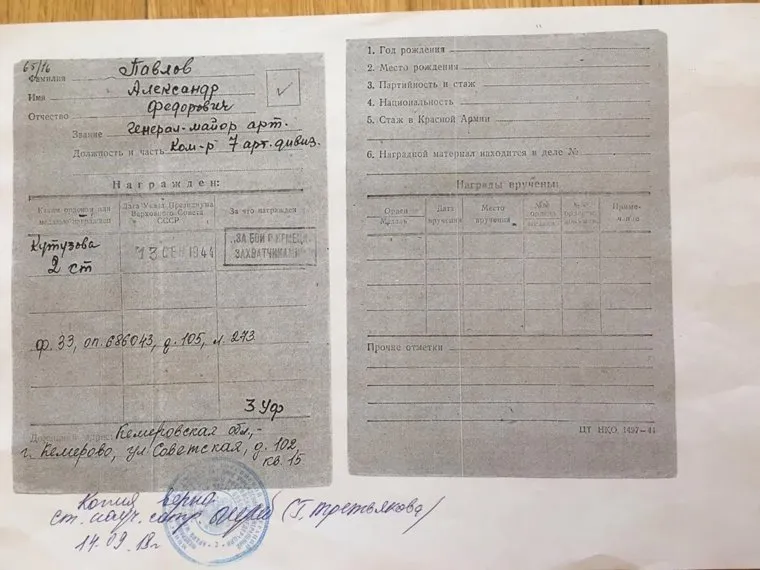 65/16
Фамилия Павлов
Имя Александр
Отчество Федорович
Звание генерал-майор арт.
Должность и часть Ком-р 7 арт. дивиз.
Награжден:
Каким орденом или медалью награжден
Дата Указа Президиума Верховного Совета СССР
За что награжден
Кутузова 2 ст
13 СЕН 1944
ЗА БОИ С НЕМЕЦ. ЗАХВАТЧИКАМИ
ф. 33, оп. 686043, д. 105, л. 273
3 Уф
Домашний адрес: Кемеровская обл.,-
г. Кемерово, ул Советская, д. 102
кв. 15
1. Год рождения
2. Место рождения
3. Партийность и стаж
4. Национальность
5. Стаж в Красной Армии
6. Наградной материал находится в деле №
Награды вручены:
Дата вручения
Место вручения
Приме-
Прочие отметки
ЦТ НКО. 1497—44
Копия верна
ст. науч. сотр. (Г. Третьякова)
14.09.18г